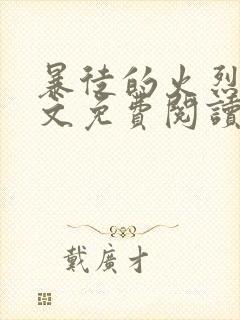 暴徒的火烈
文免費閱讀
戴廣才